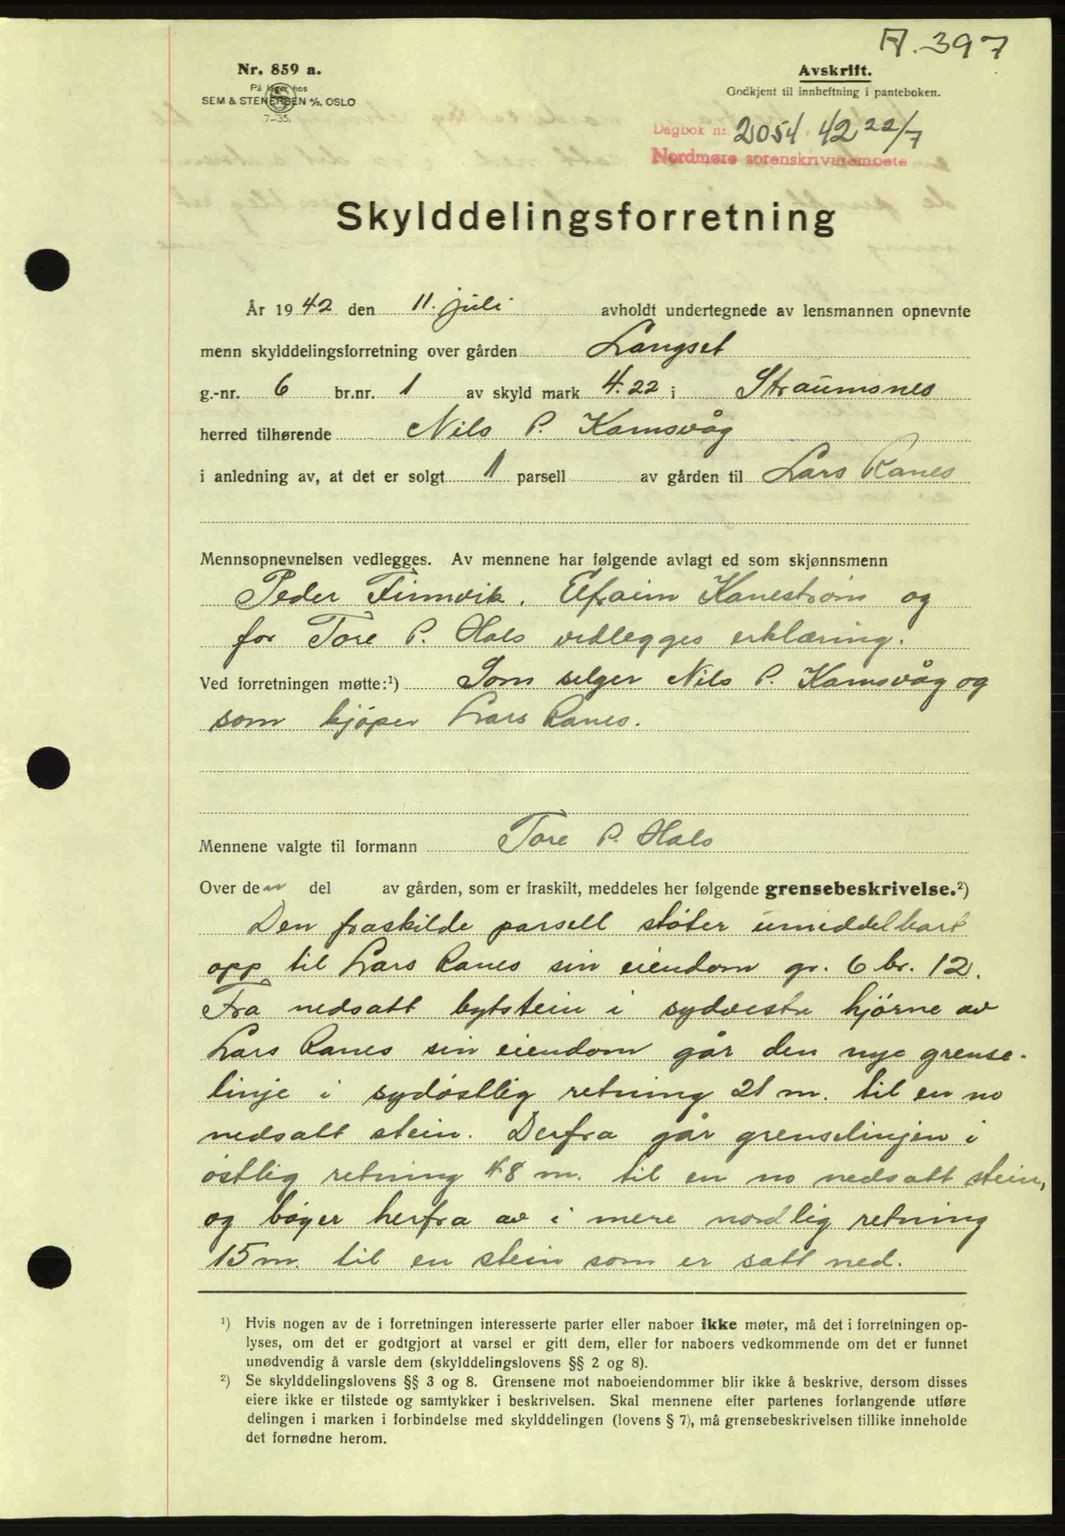 A. 397
Nr. 859 a.
På lager hos
SEM & STENERSEN A/S, OSLO
7-35.
Avskrift.
Godkjent til innheftning i panteboken.
Dagbok nr. 2054. 42 22/7
Nordmøre sorenskriverembete
Skylddelingsforretning
År 1942 den 11. juli avholdt undertegnede av lensmannen opnevnte
menn skylddelingsforretning over gården Langset
g.-nr. 6 br.nr. 1 av skyld mark 4.22 i Straumsnes
herred tilhørende Nils P. Kamsvåg
i anledning av, at det er solgt 1 parsell av gården til Lars Ranes
Mennsopnevnelsen vedlegges. Av mennene har følgende avlagt ed som skjønnsmenn
Peder Finnvik. Efraim Kanestrøm og
for Tore P. Hals vedlegges erklæring.
Ved forretningen møtte:¹) Som selger Nils P. Kamsvåg og
som kjøper Lars Ranes.
Mennene valgte til formann Tore P. Hals
Over den del av gården, som er fraskilt, meddeles her følgende grensebeskrivelse.²)
Den fraskilde parsell støter umiddelbart
opp til Lars Ranes sin eiendom gr. 6 br. 12.
Fra nedsatt bytstein i sydvestre hjørne av
Lars Ranes sin eiendom går den nye grense-
linje i sydøstlig retning 21 m. til en no
nedsatt stein. Derfra går grenselinjen i
østlig retning 48 m. til en no nedsatt stein,
og bøyer herfra av i mere nordlig retning
15 m. til en stein som er satt ned.
¹) Hvis nogen av de i forretningen interesserte parter eller naboer ikke møter, må det i forretningen op-
lyses, om det er godtgjort at varsel er gitt dem, eller for naboers vedkommende om det er funnet
unødvendig å varsle dem (skylddelingslovens §§ 2 og 8).
²) Se skylddelingslovens §§ 3 og 8. Grensene mot naboeiendommer blir ikke å beskrive, dersom disses
eiere ikke er tilstede og samtykker i beskrivelsen. Skal mennene efter partenes forlangende utføre
delingen i marken i forbindelse med skylddelingen (lovens § 7), må grensebeskrivelsen tillike inneholde
det fornødne herom.